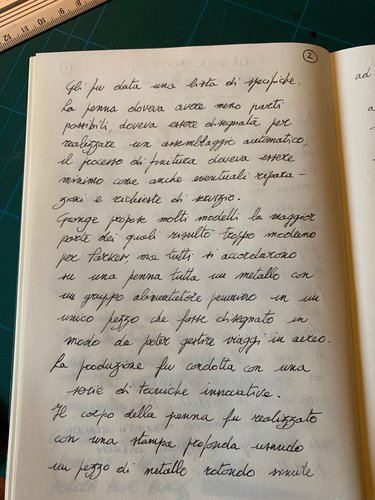 2
Gli fu data una lista di specifiche.
La penna doveva avere meno parti
possibili, doveva essere disegnata per
realizzare un assemblaggio automatico,
il processo di finitura doveva essere
minimo come anche eventuali ripara-
zioni e richieste di servizio.
Grange propose molti modelli la maggior
parte dei quali risultò troppo moderno
per Parker, ma tutti si accordarono
su una penna tutta in metallo con
un gruppo alimentatore pennino in un
unico pezzo che fosse disegnato in
modo da poter gestire viaggi in aereo.
La produzione fu condotta con una
serie di tecniche innovative.
Il corpo della penna fu realizzato
con una stampa profonda usando
un pezzo di metallo rotondo simile
ad